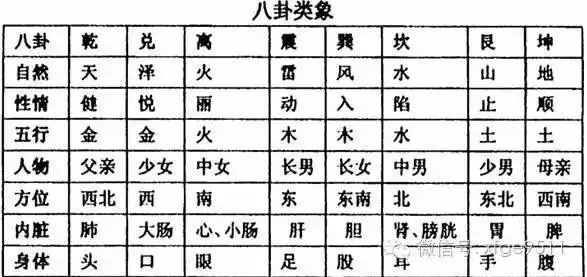 八卦类象
八卦 乾 兑 离 震 巽 坎 艮 坤
自然 天 泽 火 雷 风 水 山 地
性情 健 悦 丽 动 入 陷 止 顺
五行 金 金 火 木 木 水 土 土
人物 父亲 少女 中女 长男 长女 中男 少男 母亲
方位 西北 西 南 东 东南 北 东北 西南
内脏 肺 大肠 心、小肠 肝 胆 肾、膀胱 胃 脾
身体 头 口 眼 足 股 耳 手 腹